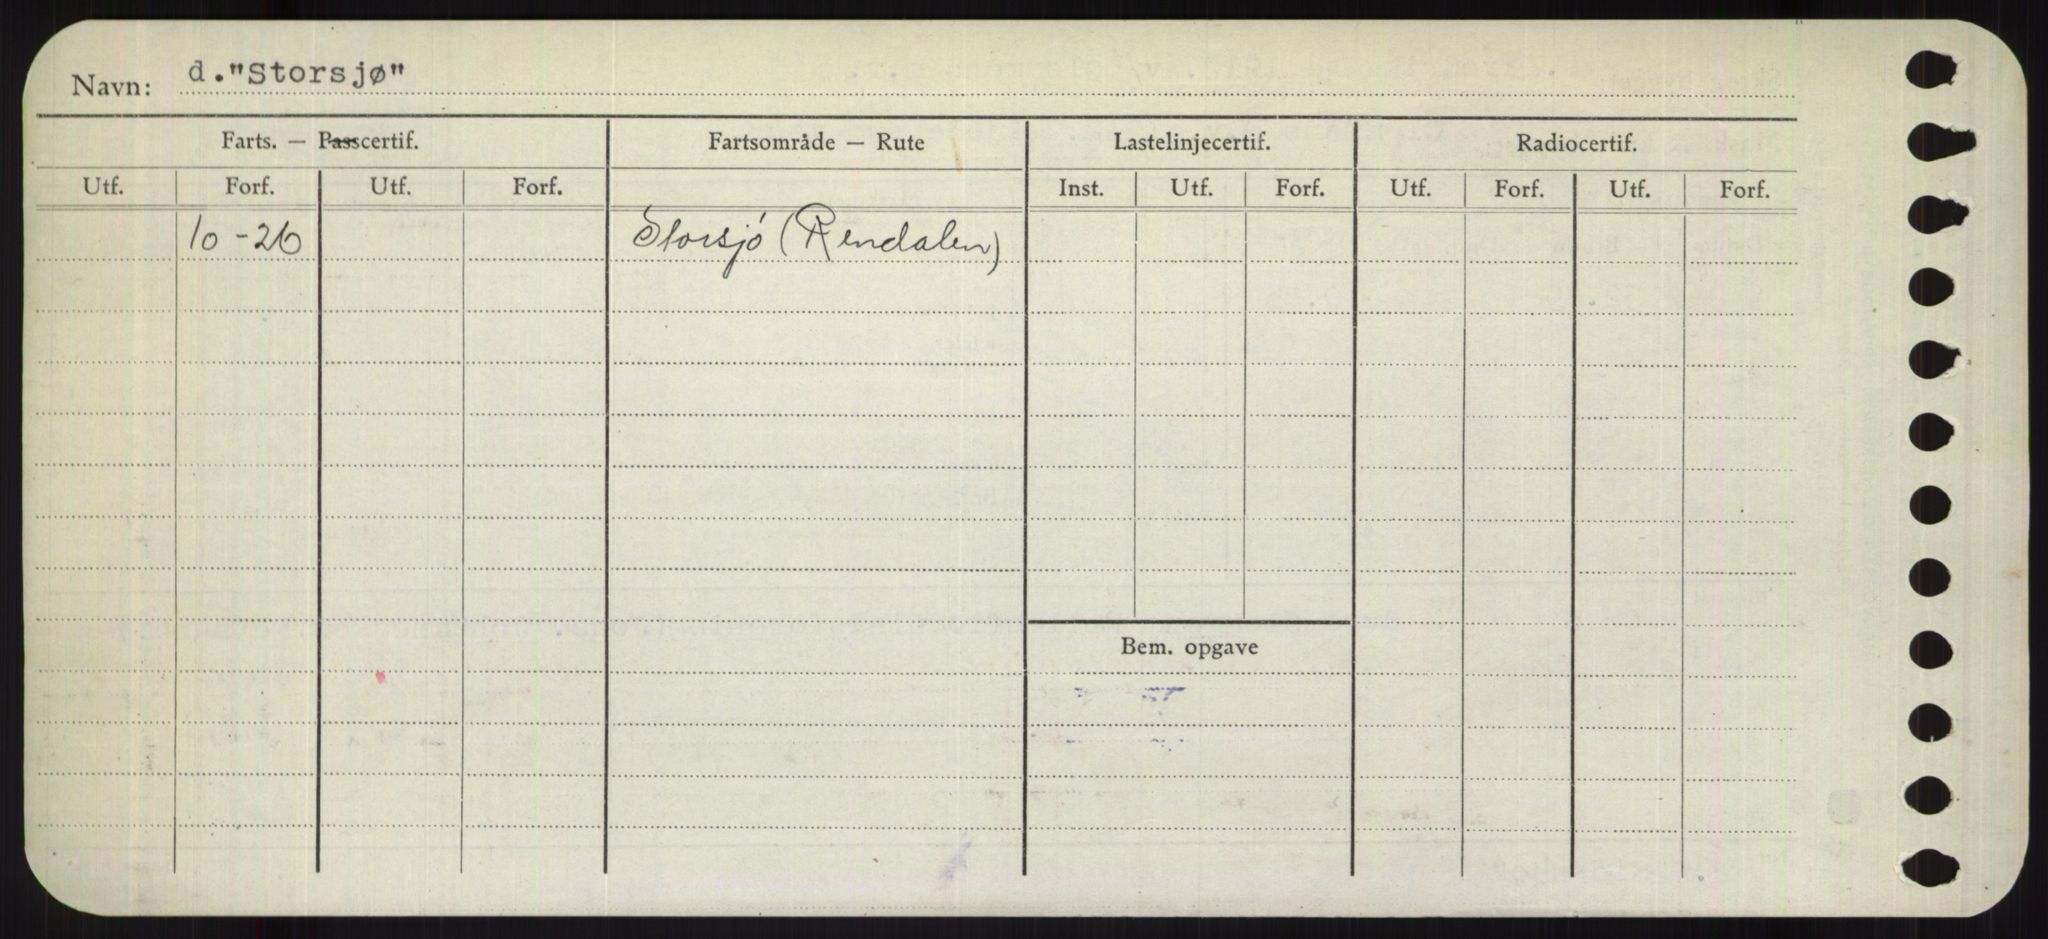 Navn: d."Storsjø"
Farts. — Passcertif. Fartsområde — Rute Lastelinjecertif. Radiocertif.
Utf. Forf. Utf. Forf. Inst. Utf. Forf. Utf. Forf. Utf. Forf.
10-26 Storsjó (Rendalen)
Bem. opgave